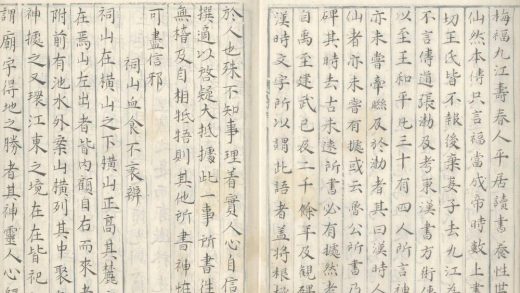 梅福九江壽春人平居讀書養性世
仙然本傳只言福當成帝時數上書
切王氏皆不報後棄妻子去九江
不言傳道張勃及考東漢書方術傳
以至王和平凡三十有四人所言神
亦未嘗牽聯及於勃者其曰漢時人
仙者亦未嘗有據或云魯公所書乃
碑其時去古未遠所書必有據然
自禹至建武已及二千餘年及觀碑
漢時文字所以謂此語者蓋將根
於人也殊不知事理著實人心自信
撰適以啟疑大抵據此一事所書件
無稽及自相牴牾則其他所書神怪
可盡信邪
祠山血食不衰辨
祠山在橫山之下橫山正高其麓
在焉山左出者皆內顧自右而來者
附前有池水外案山橫列其中聚
神據之又環江東之境在在皆祀
謂廟宇得地之勝者其神靈人心